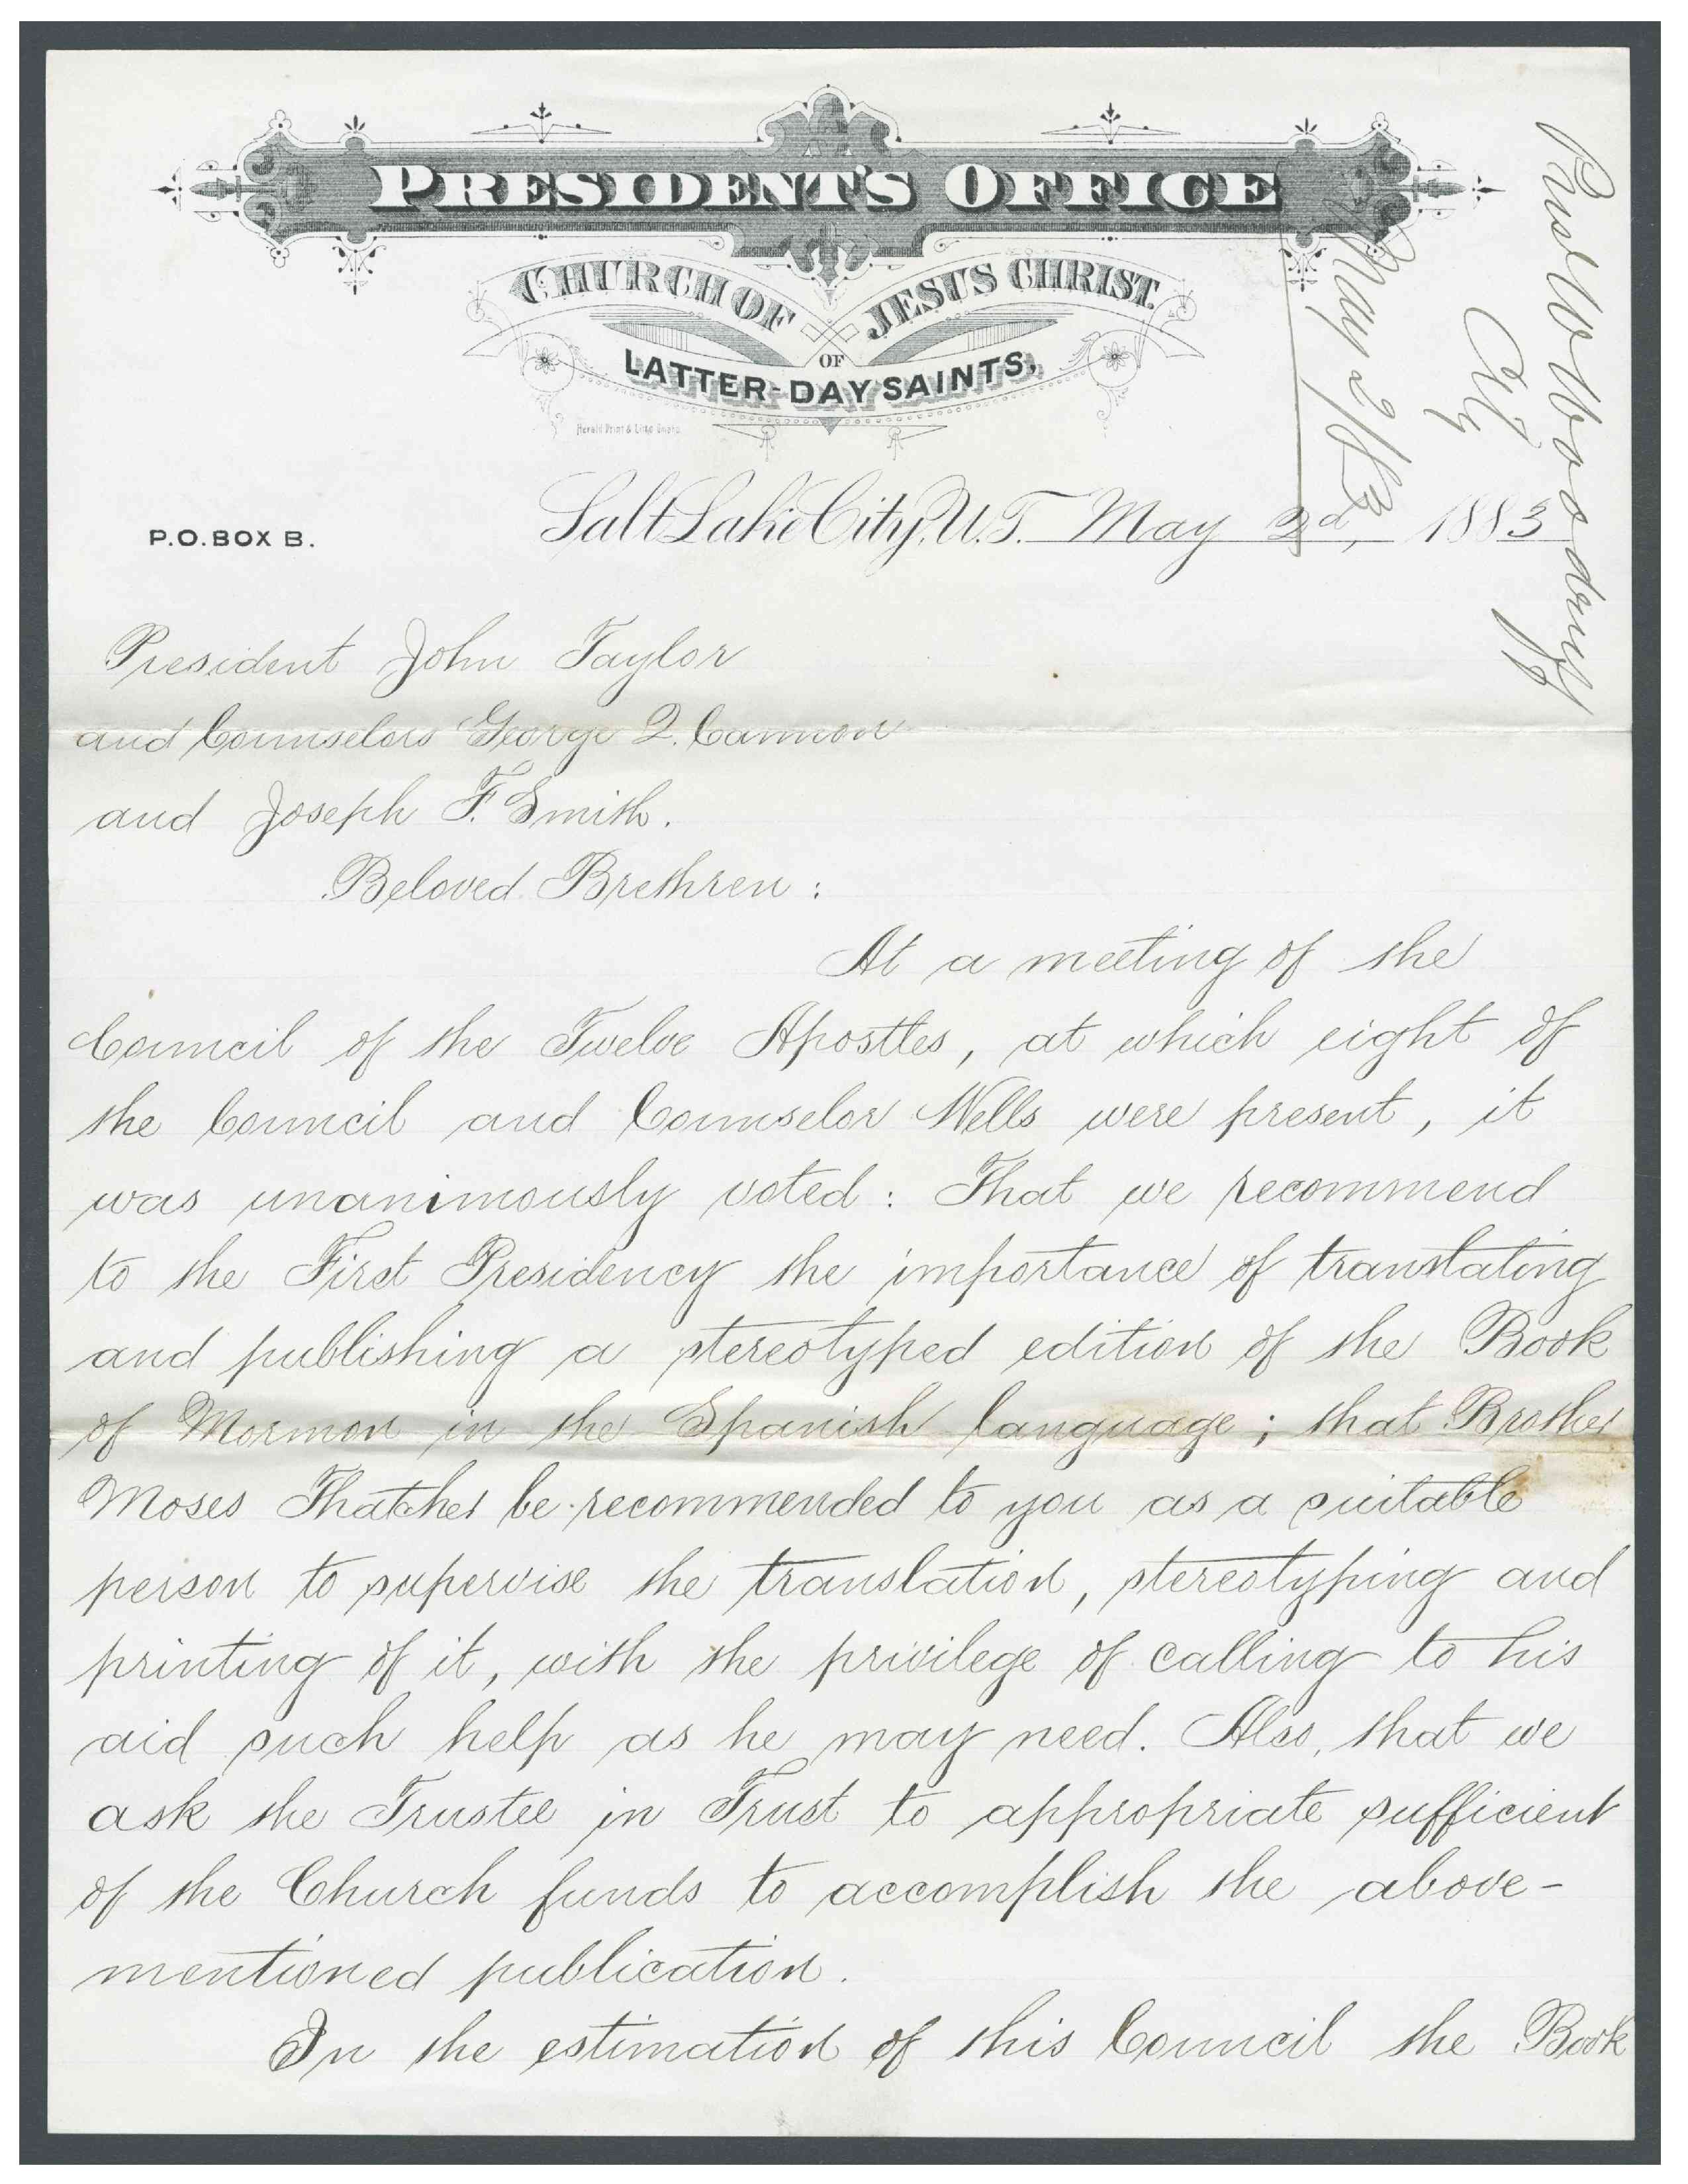 PRESIDENT'S OFFICE
CHURCH OF JESUS CHRIST
OF
LATTER-DAY SAINTS,
P.O. BOX B.
Salt Lake City, U.T. May 2d, 1883
President John Taylor
and Counselors George Q. Cannon
and Joseph F. Smith.
Beloved Brethren:
At a meeting of the
Council of the Twelve Apostles, at which eight of
the Council and Counselor Wells were present, it
was unanimously voted: That we recommend
to the First Presidency the importance of translating
and publishing a stereotyped edition of the Book
of Mormon in the Spanish language; that Brother
Moses Thatcher be recommended to you as a suitable
person to supervise the translation, stereotyping and
printing of it, with the privilege of calling to his
aid such help as he may need. Also, that we
ask the Trustee in Trust to appropriate sufficient
of the Church funds to accomplish the above-
mentioned publication.
In the estimation of this Council the Book
Pres W Woodruff
City
May 2/83